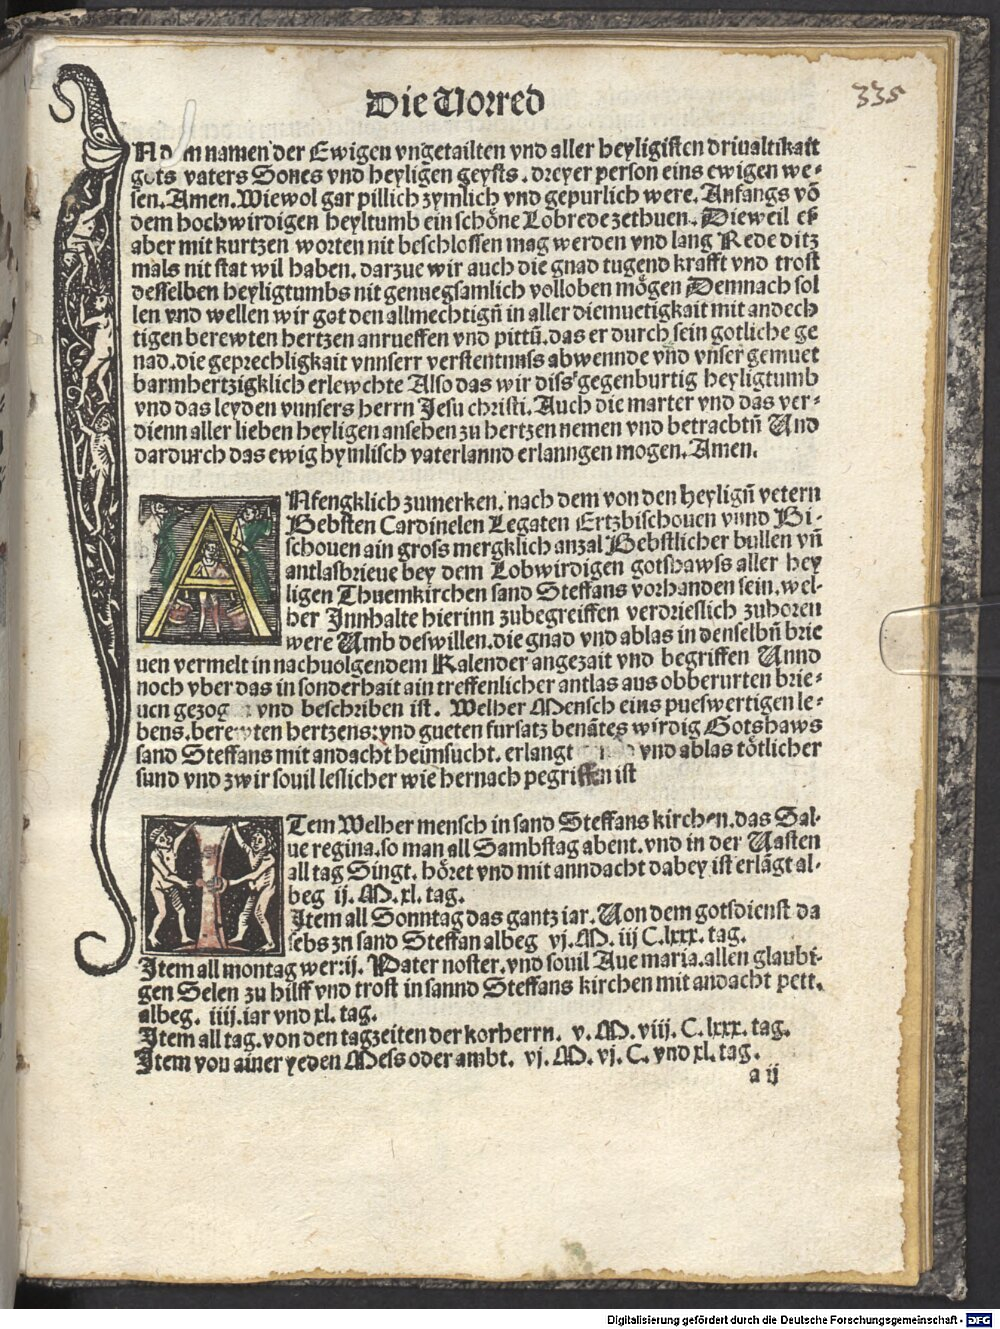 Die Vorred
335
IN dem namen der Ewigen vngetailten vnd aller heyligisten driualtikait
gots vaters Sones vnd heyligen geysts. dreyer person eins ewigen we-
sen. Amen. Wiewol gar pillich zymlich vnd gepurlich were. Anfangs võ
dem hochwirdigen heyltumb ein schöne Lobrede zethuen. Dieweil eß
aber mit kurtzen worten nit beschlossen mag werden vnd lang Rede ditz
mals nit stat wil haben. darzue wir auch die gnad tugend krafft vnd trost
desselben heyligtumbs nit genuegsamlich volloben mögen Demnach sol
len vnd wellen wir got den allmechtigñ in aller diemuetigkait mit andech
tigen berewten hertzen anrueffen vnd pittũ. das er durch sein gotliche ge
nad. die geprechligkait vnnserr verstentnuss abwennde vnd vnser gemuet
barmhertzigklich erlewchte Also das wir diss gegenburtig heyligtumb
vnd das leyden vunsers herrn Jesu christi. Auch die marter vnd das ver-
dienn aller lieben heyligen ansehen zu hertzen nemen vnd betrachtñ Und
dardurch das ewig hymlisch vaterlannd erlanngen mogen. Amen.
ANfengklich zumerken. nach dem von den heyligñ vetern
Bebsten Cardinelen Legaten Ertzbischouen vnnd Bi-
schouen ain gross mergklich anzal Bebstlicher bullen vñ
antlasbrieue bey dem Lobwirdigen gotshawss aller hey
ligen Thuemkirchen sand Steffans vorhanden sein. wel-
her Innhalte hierinn zubegreiffen verdrieslich zuhoren
were Umb deswillen. die gnad vnd ablas in denselbñ brie
uen vermelt in nachuolgendem Kalender angezait vnd begriffen Unnd
noch vber das in sonderhait ain treffenlicher antlas aus obberurten brie-
uen gezogen vnd beschriben ist. Welher Mensch eins pueswertigen le-
bens. berewten hertzens: vnd gueten fursatz benãtes wirdig Gotshaws
sand Steffans mit andacht heimsucht. erlangt vnd ablas tötlicher
sund vnd zwir souil leslicher wie hernach pegriffen ist
ITem Welher mensch in sand Steffans kirchen. das Sal-
ue regina. so man all Sambstag abent. vnd in der Vasten
all tag Singt. höret vnd mit anndacht dabey ist erlãgt al-
beg ij. M. xl. tag.
Item all Sonntag das gantz iar. Von dem gotsdienst da
sebs zu sand Steffan albeg vj. M. iij C. lxxx. tag.
Item all montag wer: ij. Pater noster. vnd souil Aue maria. allen glaubi-
gen Selen zu hilff vnd trost in sannd Steffans kirchen mit andacht pett.
albeg. iiij. iar vnd xl. tag.
Item all tag. von den tagzeiten der korherrn. v. M. viij. C. lxxx. tag.
Item von ainer yeden Mess oder ambt. vj. M. vj. C. vnd xl. tag.
a ij
Digitalisierung gefördert durch die Deutsche Forschungsgemeinschaft - DFG